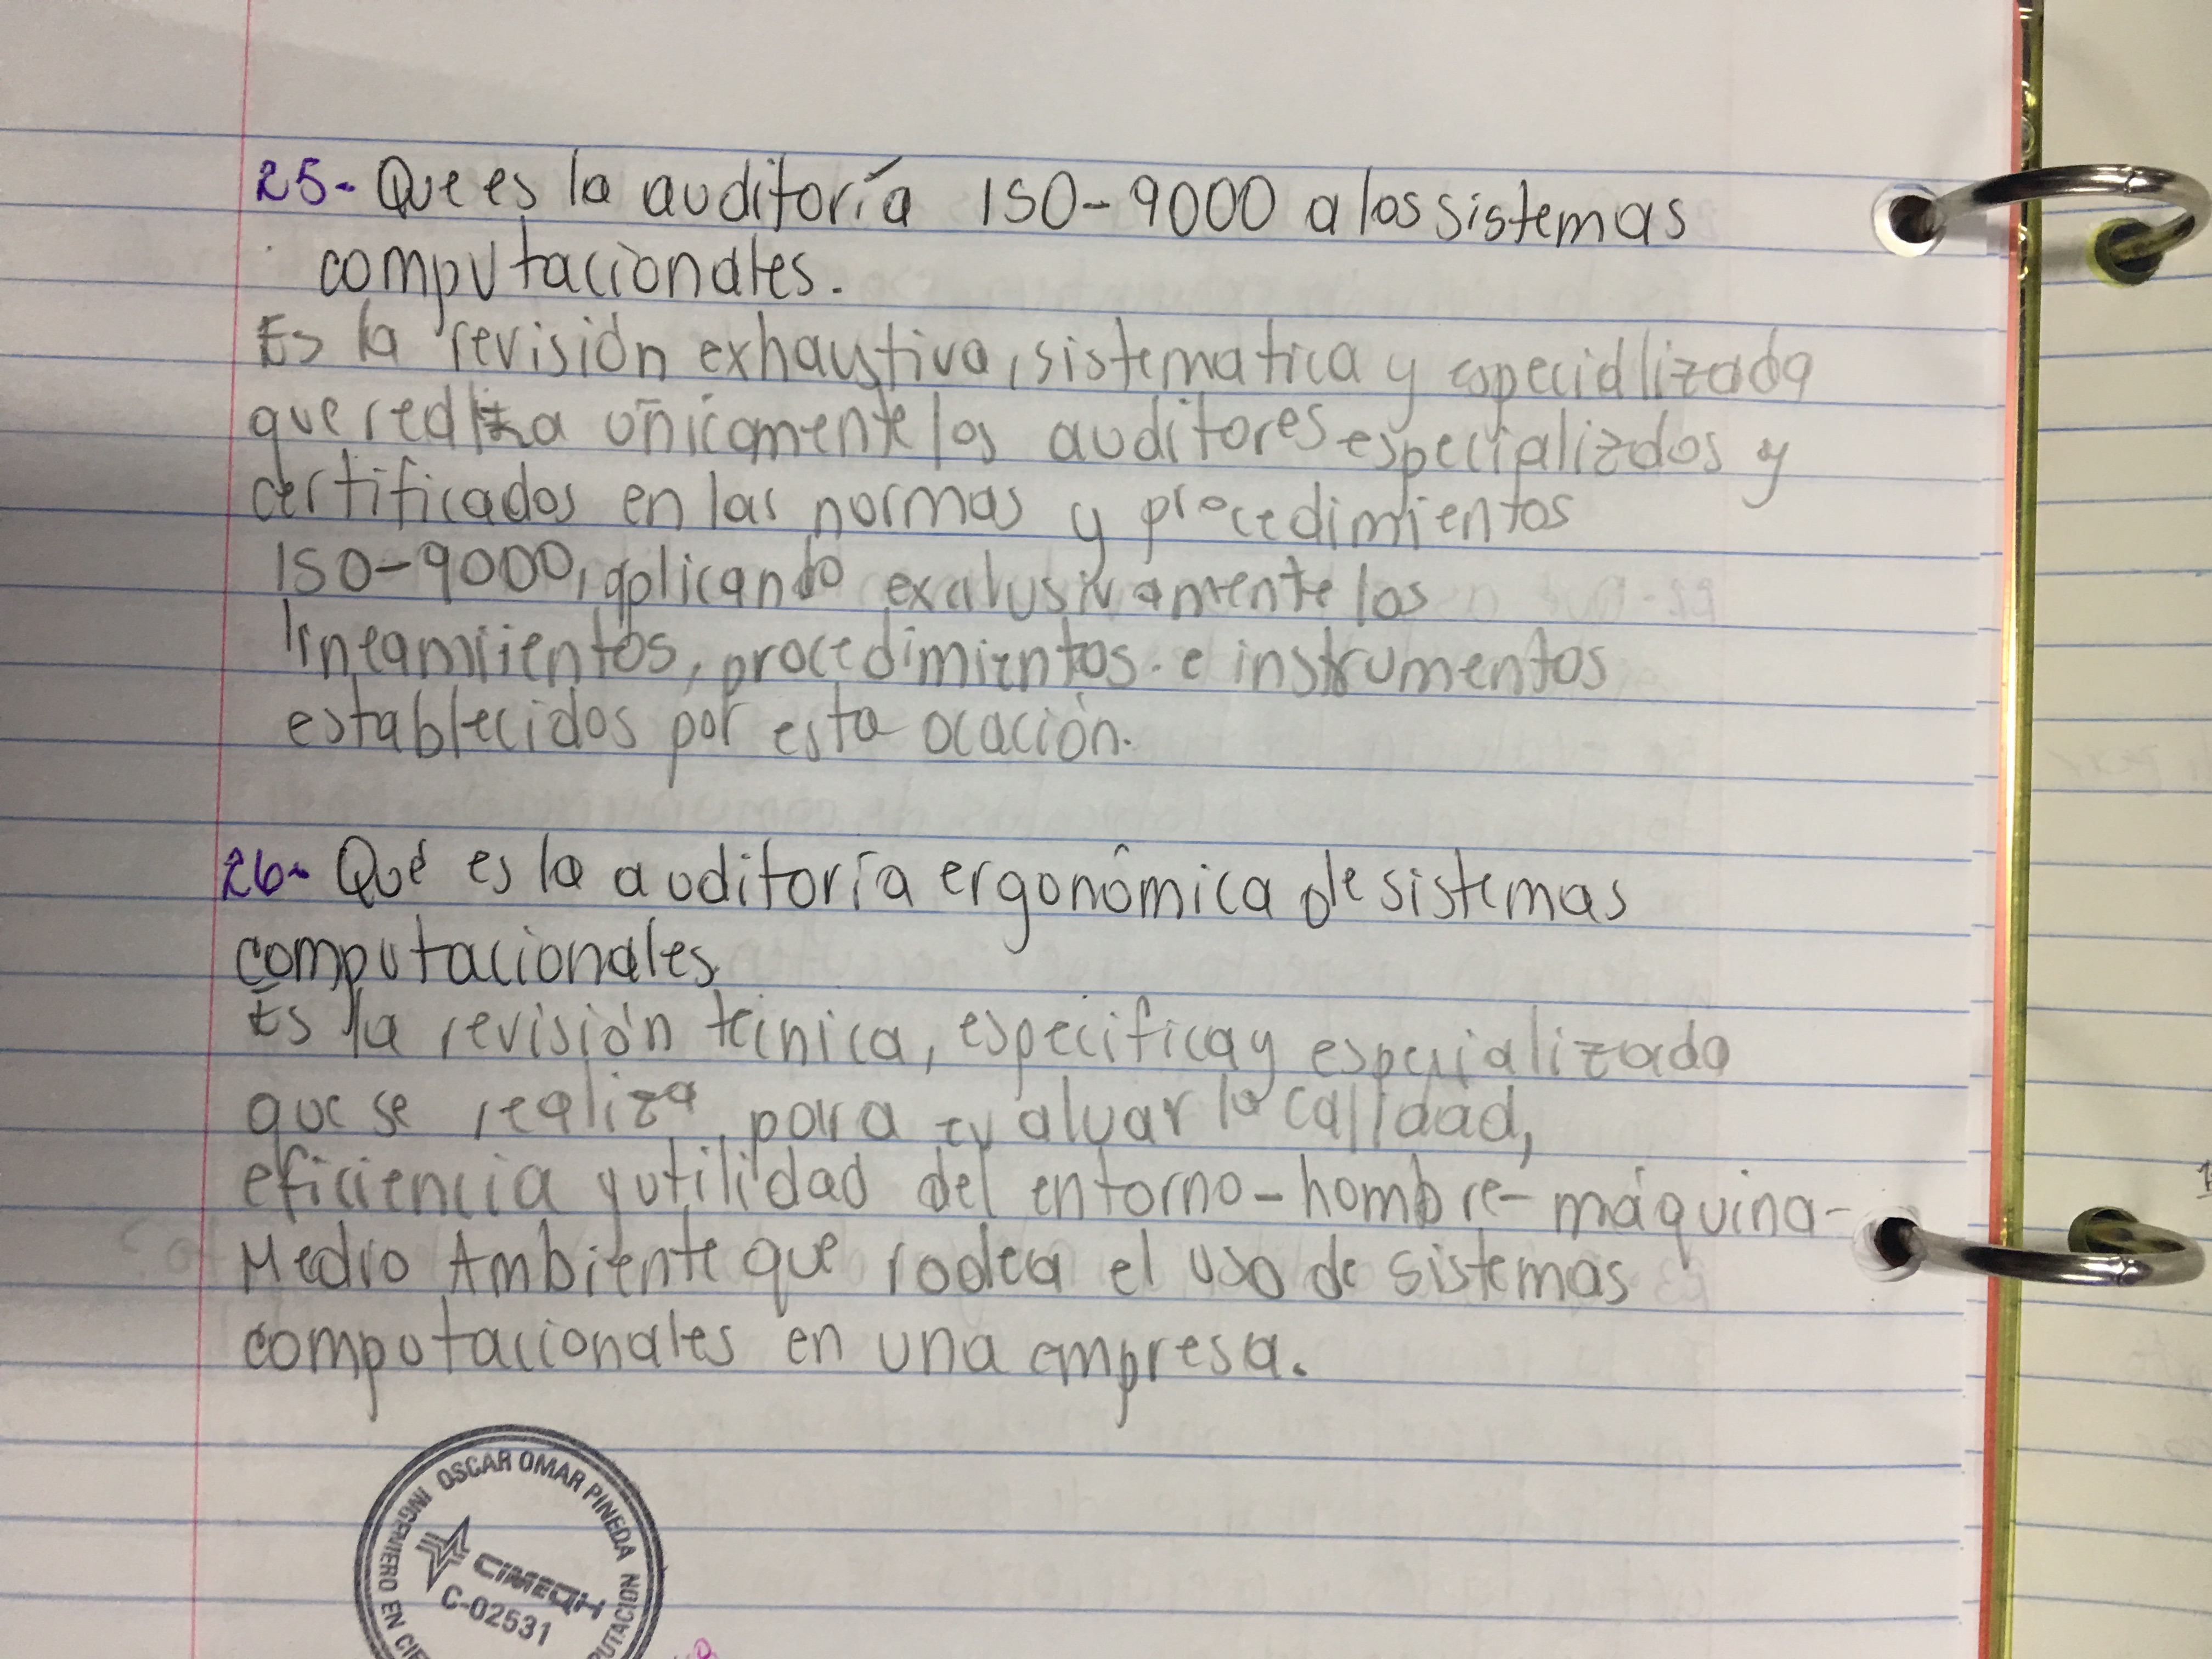 25- Que es la auditoría ISO-9000 a los sistemas
computacionales.
Es la revisión exhaustiva, sistematica y especializada
que realiza únicamente los auditores especializdos y
certificados en las normas y procedimientos
ISO-9000, aplicando exclusivamente los
lineamiientos, procedimientos. e instrumentos
establecidos por esta ocación.
26- Qué es la auditoría ergonómica de sistemas
computacionales
Es la revisión técnica, especifica y especializado
que se realiza para evaluar la calidad,
eficiencia y utilidad del entorno-hombre-máquina-
Medio Ambiente que rodea el uso de sistemas
computacionales en una empresa.
INGENIERO EN OSCAR OMAR PINEDA
CIMEQH
C-02531